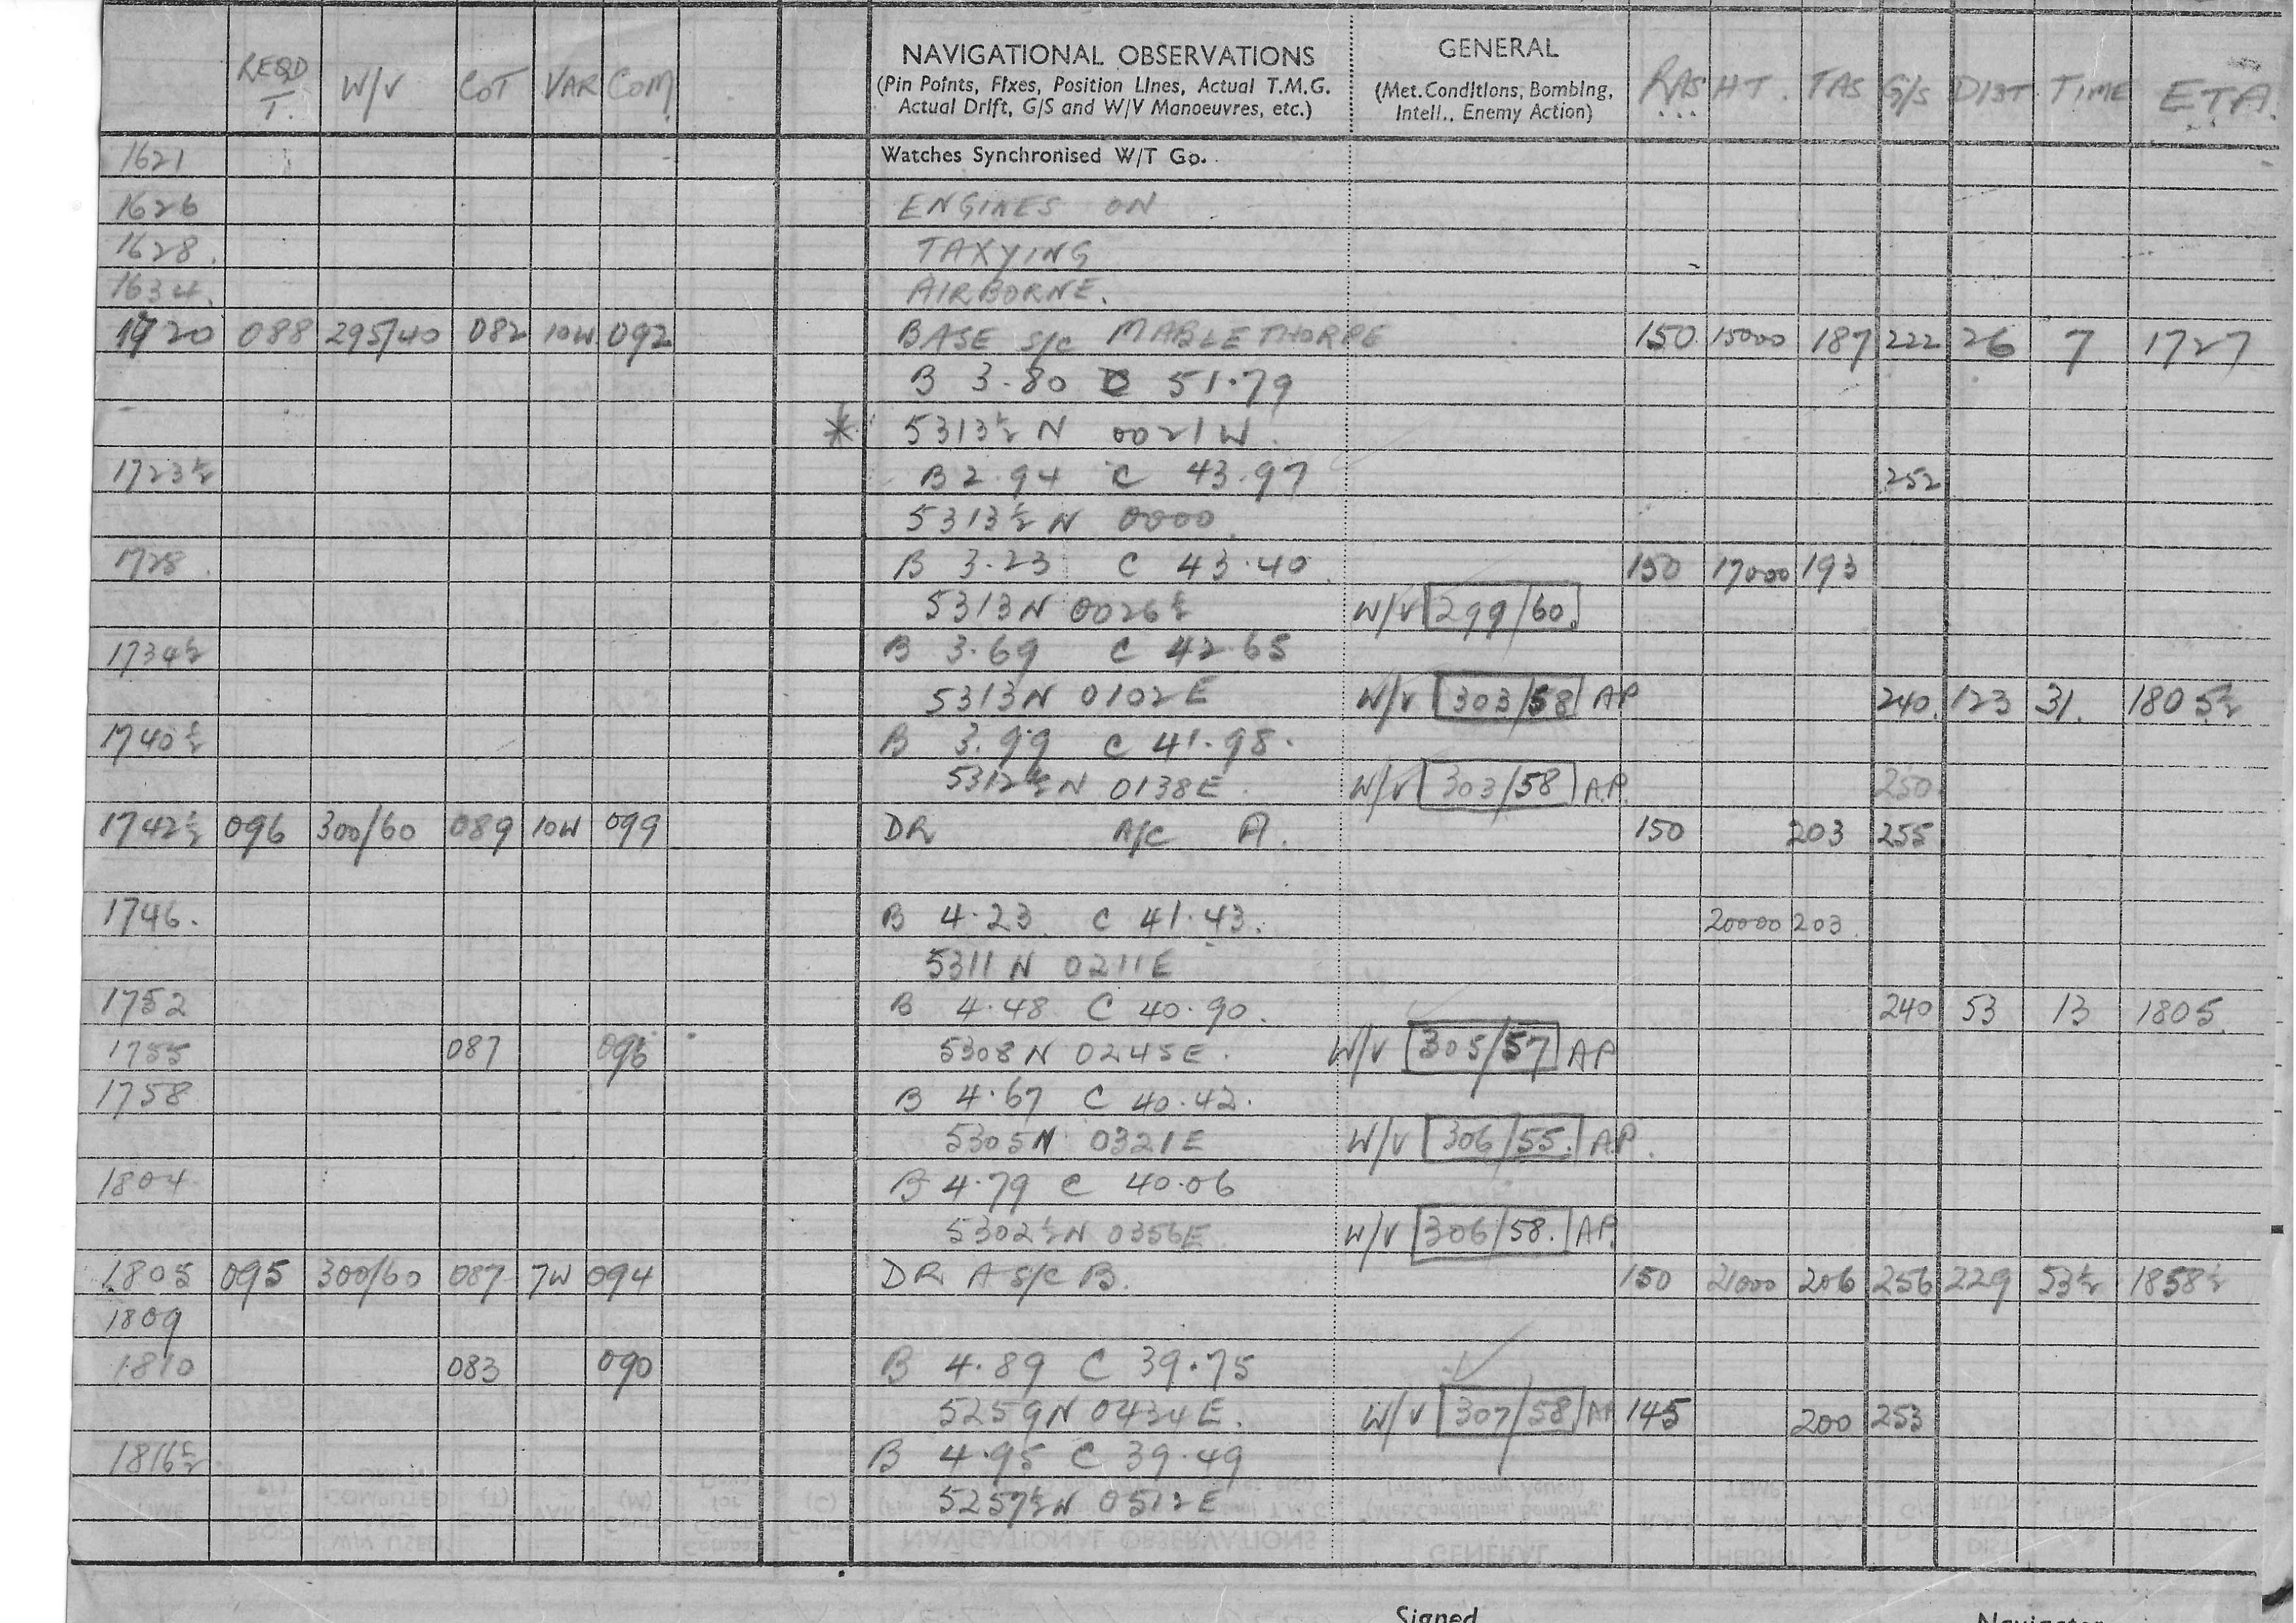 REQD T. W/V COT VAR COM. NAVIGATIONAL OBSERVATIONS GENERAL RAS HT. TAS G/S DIST TIME ETA.
(Pin Points, Fixes, Position Lines, Actual T.M.G. (Met. Conditions, Bombing,
Actual Drift, G/S and W/V Manoeuvres, etc.) Intell., Enemy Action)
1621 Watches Synchronised W/T Go.
1626 ENGINES ON
1628. TAXYING
1634. AIRBORNE.
1720 088 295/40 082 10W 092 BASE S/C MABLETHORPE 150 15000 187 222 26 7 1727
B 3.80 C 51.79
* 5313½ N 0021W
1723½ B 2.94 C 43.97 252
5313½ N 0000
1728. B 3.23 C 43.40 150 17000 193
5313N 0026½ W/V 299/60.
1734½ B 3.69 C 42.65
5313N 0102E W/V 303/58 AP 240. 123 31. 1805½
1740½ B 3.99 C 41.98.
5312½N 0138E. W/V 303/58 A.P. 250
1742½ 096 300/60 089 10W 099 DR A/C A. 150 203 255
1746. B 4.23 C 41.43. 20000 203.
5311N 0211E
1752 B 4.48 C 40.90. 240 53 13 1805.
1755 087 096 5308N 0245E. W/V 305/57 AP
1758 B 4.67 C 40.42.
5305N 0321E W/V 306/55. AP.
1804 B 4.79 C 40.06
5302½N 0356E W/V 306/58. AP.
1805 095 300/60 087 7W 094 DR A S/C B. 150 21000 206 256 229 53½ 1858½
1809
1810 083 090 B 4.89 C 39.75
5259N 0434E. W/V 307/58 AP 145 200 253
1816½ B 4.95 C 39.49
5257½N 0512E
Signed Navigator